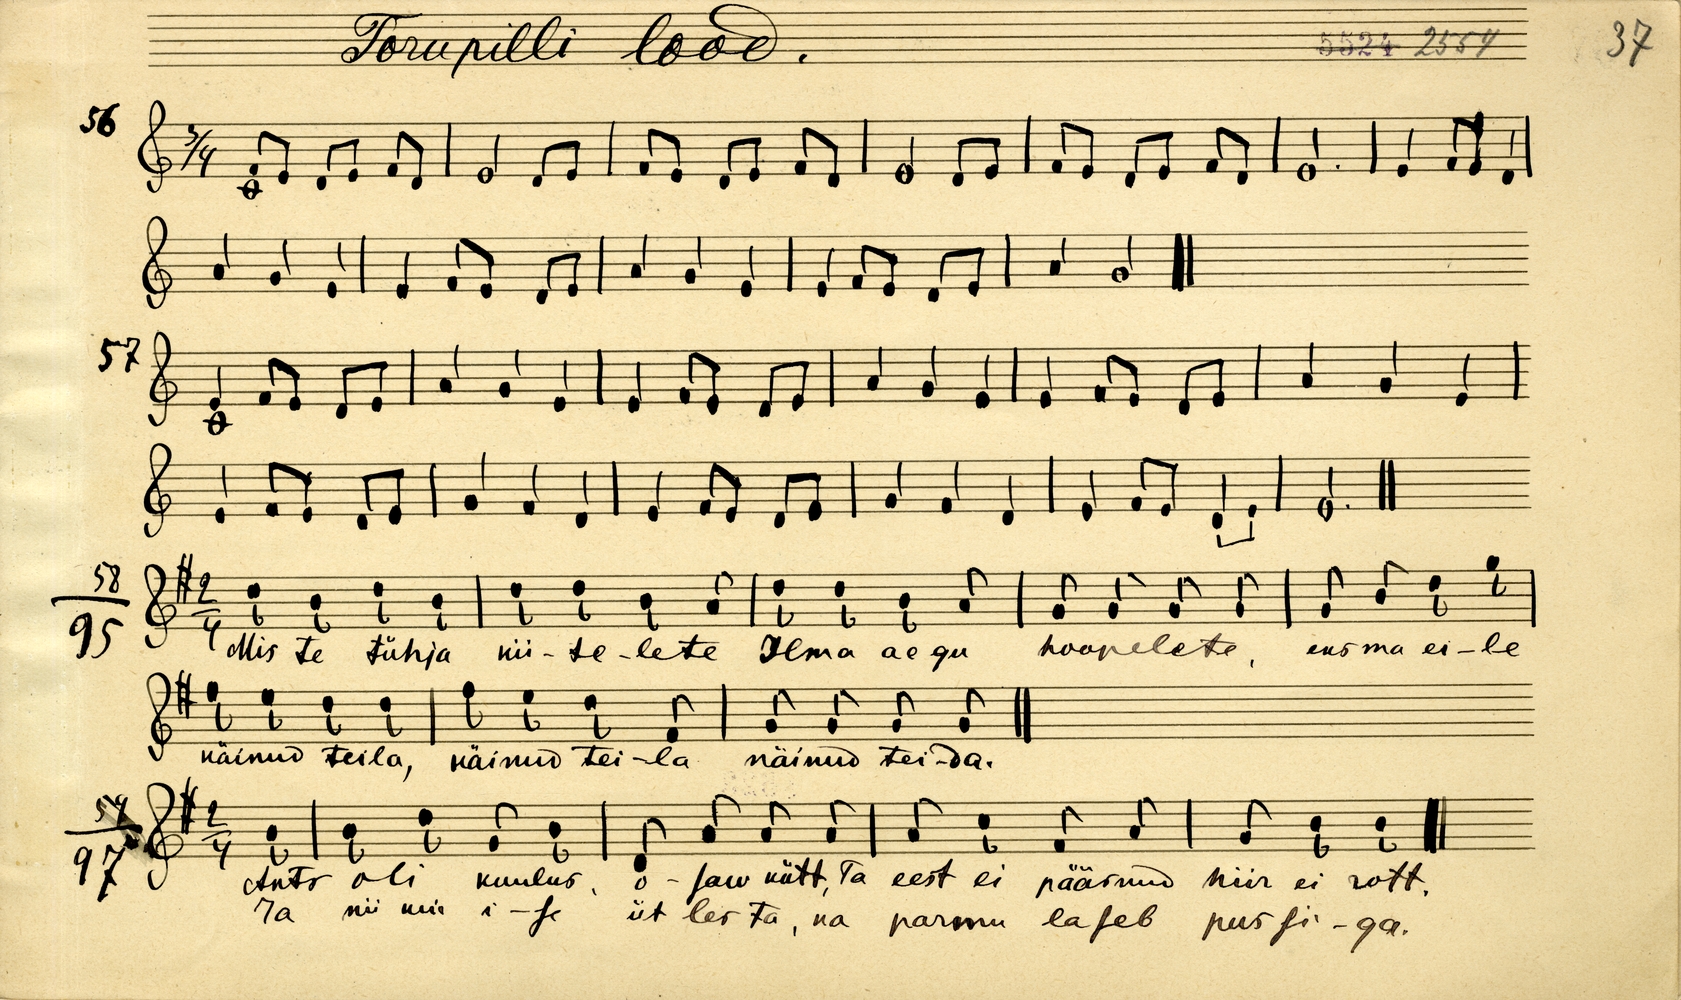 Torupilli lood.
5524 2554
37
56
3/4
57
58
95
2/4
Mis te tühja nii-te-lete Ilma aegu hoopelete, ens ma ei-le
näinud teila, näinud tei-la näinud tei-da.
97
2/4
Ants oli kuulus, o-saw kütt, Ta eest ei pääsnud hiir ei rott.
Ta nii kui i-se üt les ta, ka parmu laseb pussi-ga.